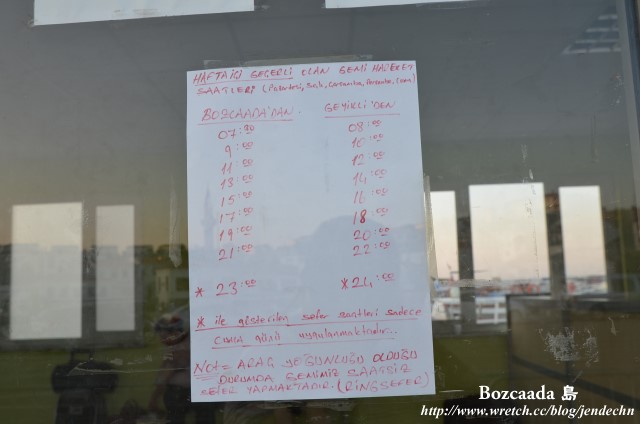 HAFTAİÇİ GEÇERLİ OLAN GEMİ HAREKET
SAATLERİ (Pazartesi, Salı, Çarşamba, Perşembe, Cuma)
BOZCAADA'DAN GEYİKLİ'DEN
07:30 08:00
9:00 10:00
11:00 12:00
13:00 14:00
15:00 16:00
17:00 18:00
19:00 20:00
21:00 22:00
* 23:00 * 24:00
* ile gösterilen sefer saatleri sadece
Cuma günü uygulanmaktadır...
Not= ARAÇ YOĞUNLUĞU OLDUĞU
DURUMDA GEMİMİZ SAATSİZ
SEFER YAPMAKTADIR. (RİNG SEFER)
Bozcaada 島
http://www.wretch.cc/blog/jendechn